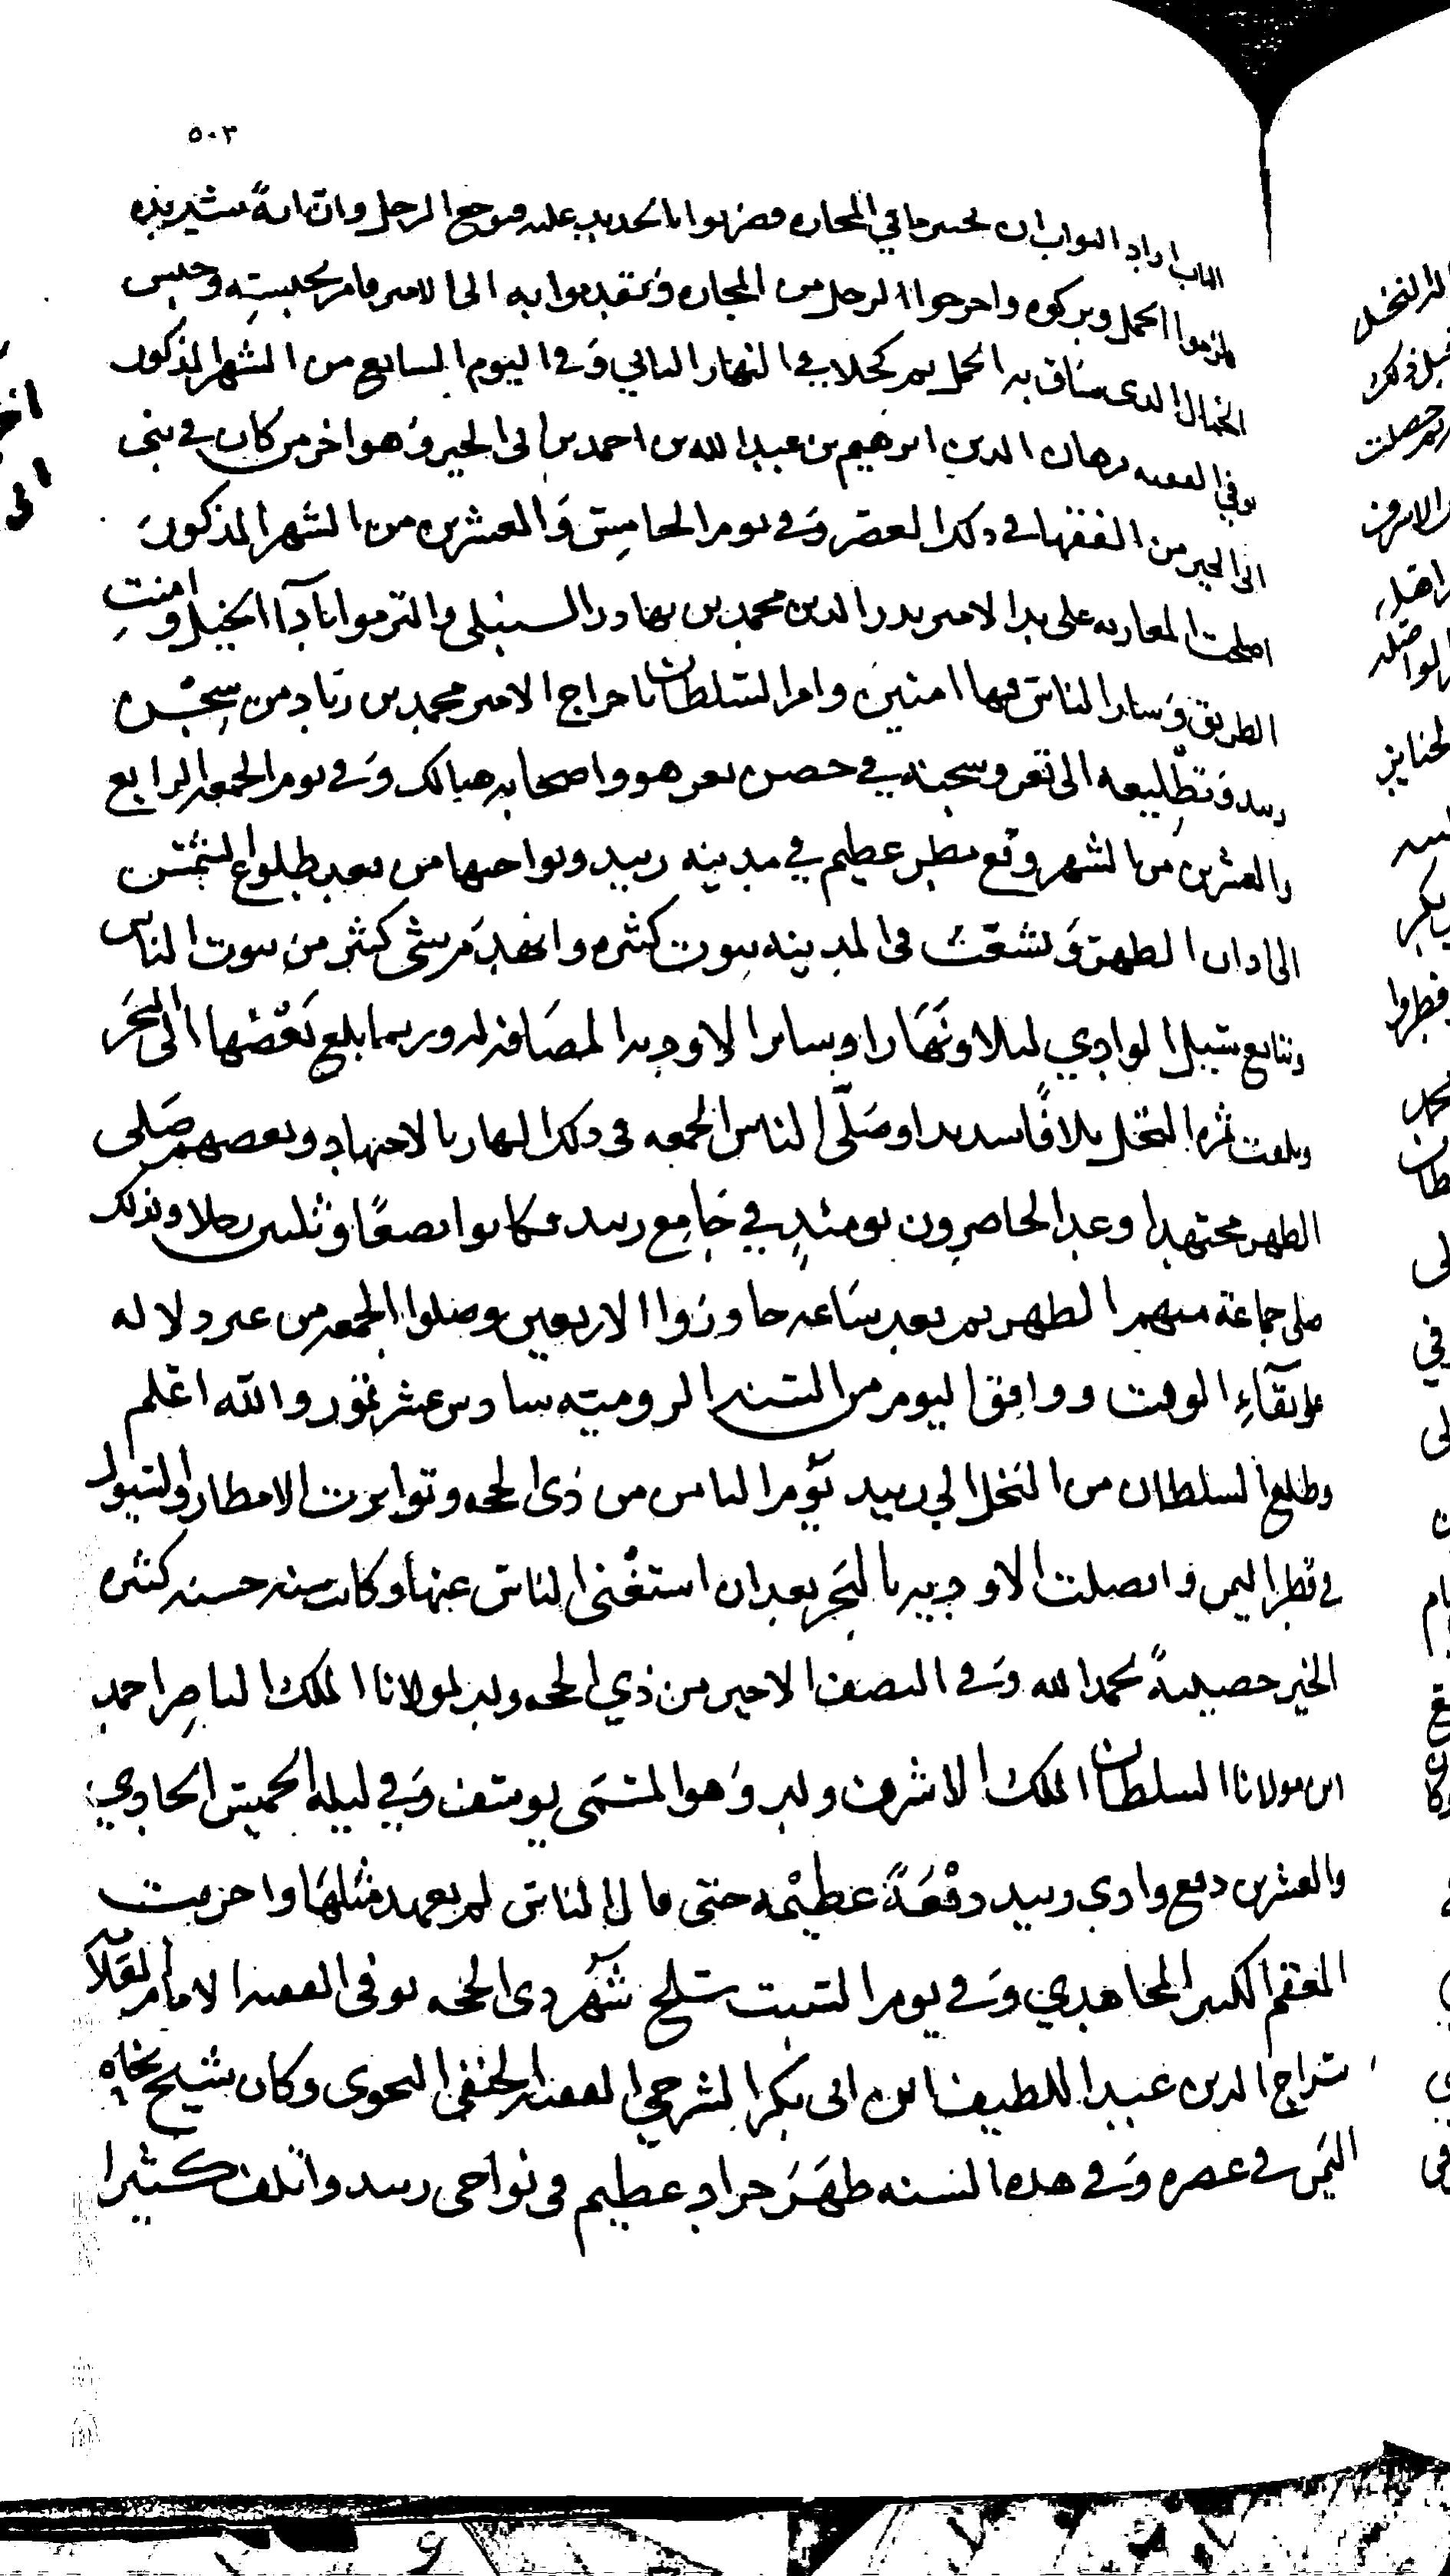 ٥٠٣
الباب اراد البواب ان يحبس ما في المحاره فضربوا بالحديد عليه فتوجع الرجل وان انة شديده
فلزموا الجمل وبركوه واخرجوا الرجل من المحاره وتقدموا به الى الامير فامر بحبسه وحبس
الجمال الذى ساق به الجمل ثم كحلا في النهار الثاني وفي اليوم السابع من الشهر المذكور
توفي الفقيه برهان الدين ابرهيم بن عبد الله بن احمد بن ابي الخير وهو اخر من كان في بني
ابي الخير من الفقها في ذلك العصر وفي يوم الخامس والعشرين من الشهر المذكور
اصلحت المعازبه على يد الامير بدر الدين محمد بن بهادر السنبلي والتزموا باداء الخيل وامنت
الطريق وسار الناس فيها امنين وامر السلطان باخراج الامير محمد بن زياد من سجن
زبيد وتطليعه الى تعز وسجنه في حصن تعز هو واصحابه هنالك وفي يوم الجمعه الرابع
والعشرين من الشهر وقع مطر عظيم في مدينه زبيد ونواحيها من بعد طلوع الشمس
الى اذان الظهر وتشعثت في المدينه بيوت كثيره وانهدم شي كثير من بيوت الناس
وتتابع سيل الوادي ليلا ونهارا وساير الاوديه المصاقبه له وربما بلغ بعضها الى البحر
وتلفت ثمره النخل تلافا شديدا وصلى الناس الجمعه في ذلك النهار بالاجتهاد وبعضهم صلى
الظهر مجتهدا وعد الحاضرون يومئذ في جامع زبيد فكانوا بضعا وثلثين رجلا وبذلك
صلى جماعة منهم الظهر ثم بعد ساعه جاوزوا الاربعين وصلوا الجمعه من غير دلاله
على بقاء الوقت ووافق اليوم من السنه الروميه سادس عشر تموز والله اعلم
وطلع السلطان من النخل الى زبيد يوم الثامن من ذى الحجه وتواترت الامطار والسيول
في قطر اليمن واتصلت الاوديه بالبحر بعد ان استغنى الناس عنها وكانت سنه حسنه كثيره
الخير خصيبة بحمد الله وفي النصف الاخير من ذي الحجه ولد لمولانا الملك الناصر احمد
ابن مولانا السلطان الملك الاشرف ولد وهو المسمى يوسف وفي ليله الخميس الحادي
والعشرين دفع وادي زبيد دفعة عظيمه حتى قال الناس لم يعهد مثلها واخربت
العقم الكبير المجاهدي وفي يوم السبت سلخ شهر ذى الحجه توفي الفقيه الامام العلا
سراج الدين عبد اللطيف ابن ابى بكر الشرجي الفقيه الحنفي النحوى وكان شيخ نحاه
اليمن في عصره وفي هذه السنه ظهر جراد عظيم في نواحى زبيد واتلف كثيرا